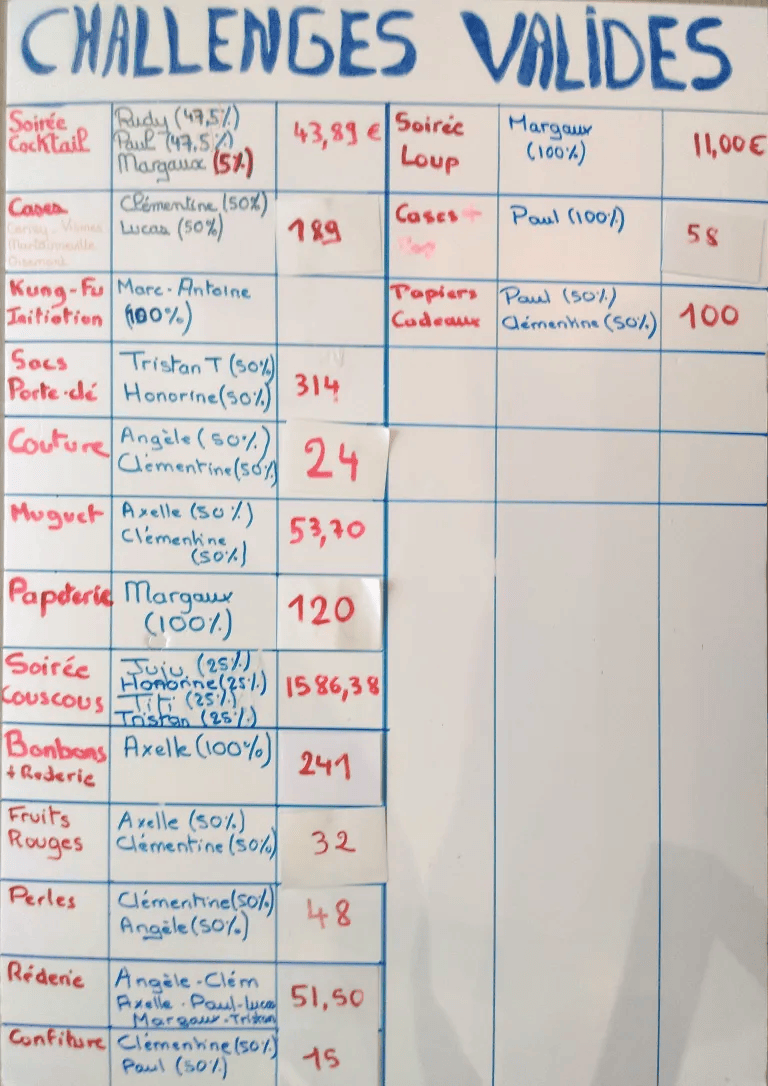 CHALLENGES VALIDES
Soirée Cocktail
Rudy (47,5%)
Paul (47,5%)
Margaux (5%)
43,89 €
Cases
Cerisy - Vismes
Martainneville
Oisemont
Clémentine (50%)
Lucas (50%)
189
Kung-Fu
Initiation
Marc-Antoine
(100%)
Sacs
Porte-clé
Tristan T (50%)
Honorine (50%)
314
Couture
Angèle (50%)
Clémentine (50%)
24
Muguet
Axelle (50%)
Clémentine
(50%)
53,70
Papeterie
Margaux
(100%)
120
Soirée
Couscous
Juju (25%)
Honorine (25%)
Titi (25%)
Tristan (25%)
1586,38
Bonbons
+ Rederie
Axelle (100%)
241
Fruits
Rouges
Axelle (50%)
Clémentine (50%)
32
Perles
Clémentine (50%)
Angèle (50%)
48
Réderie
Angèle - Clém
Axelle - Paul - Lucas
Margaux - Tristan
51,50
Confiture
Clémentine (50%)
Paul (50%)
15
Soirée
Loup
Margaux
(100%)
11,00 €
Cases +
Paul (100%)
58
Papiers
Cadeaux
Paul (50%)
Clémentine (50%)
100